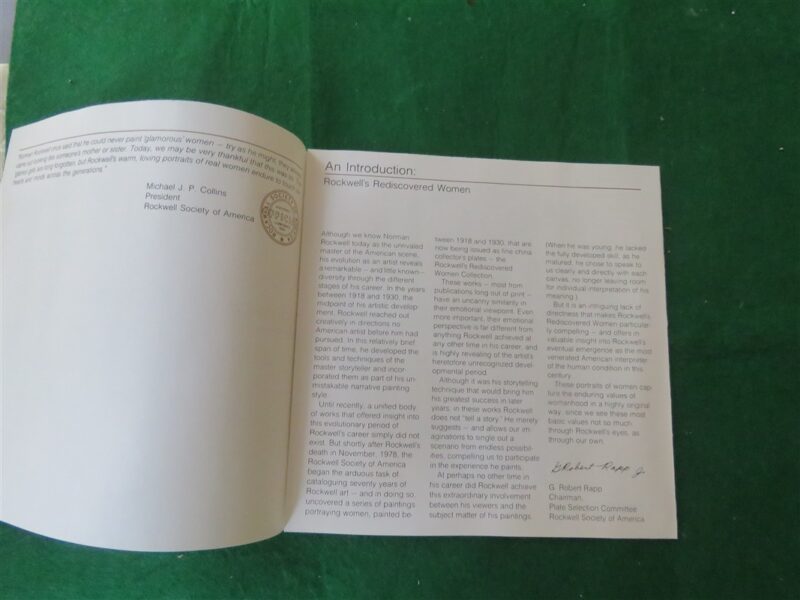 "Norman Rockwell once said that he could never paint 'glamorous' women — try as he might, they
came out looking like someone's mother or sister. Today, we may be very thankful that this was
'glamor girls are long forgotten, but Rockwell's warm, loving portraits of real women endure to touch
hearts and minds across the generations."
Michael J. P. Collins
President
Rockwell Society of America
An Introduction:
Rockwell's Rediscovered Women
Although we know Norman
Rockwell today as the unrivaled
master of the American scene,
his evolution as an artist reveals
a remarkable — and little known —
diversity through the different
stages of his career. In the years
between 1918 and 1930, the
midpoint of his artistic develop-
ment, Rockwell reached out
creatively in directions no
American artist before him had
pursued. In this relatively brief
span of time, he developed the
tools and techniques of the
master storyteller and incor-
porated them as part of his un-
mistakable narrative painting
style.
Until recently, a unified body
of works that offered insight into
this evolutionary period of
Rockwell's career simply did not
exist. But shortly after Rockwell's
death in November, 1978, the
Rockwell Society of America
began the arduous task of
cataloguing seventy years of
Rockwell art — and in doing so
uncovered a series of paintings
portraying women, painted be-
tween 1918 and 1930, that are
now being issued as fine china
collector's plates — the
Rockwell's Rediscovered
Women Collection.
These works — most from
publications long out of print —
have an uncanny similarity in
their emotional viewpoint. Even
more important, their emotional
perspective is far different from
anything Rockwell achieved at
any other time in his career, and
is highly revealing of the artist's
heretofore unrecognized devel-
opmental period.
Although it was his storytelling
technique that would bring him
his greatest success in later
years, in these works Rockwell
does not "tell a story." He merely
suggests — and allows our im-
aginations to single out a
scenario from endless possibili-
ties, compelling us to participate
in the experience he paints.
At perhaps no other time in
his career did Rockwell achieve
this extraordinary involvement
between his viewers and the
subject matter of his paintings.
(When he was young, he lacked
the fully developed skill; as he
matured, he chose to speak to
us clearly and directly with each
canvas, no longer leaving room
for individual interpretation of his
meaning.)
But it is an intriguing lack of
directness that makes Rockwell's
Rediscovered Women particular-
ly compelling — and offers in-
valuable insight into Rockwell's
eventual emergence as the most
venerated American interpreter
of the human condition in this
century.
These portraits of women cap-
ture the enduring values of
womanhood in a highly original
way, since we see these most
basic values not so much
through Rockwell's eyes, as
through our own.
G. Robert Rapp Jr
G. Robert Rapp
Chairman,
Plate Selection Committee
Rockwell Society of America